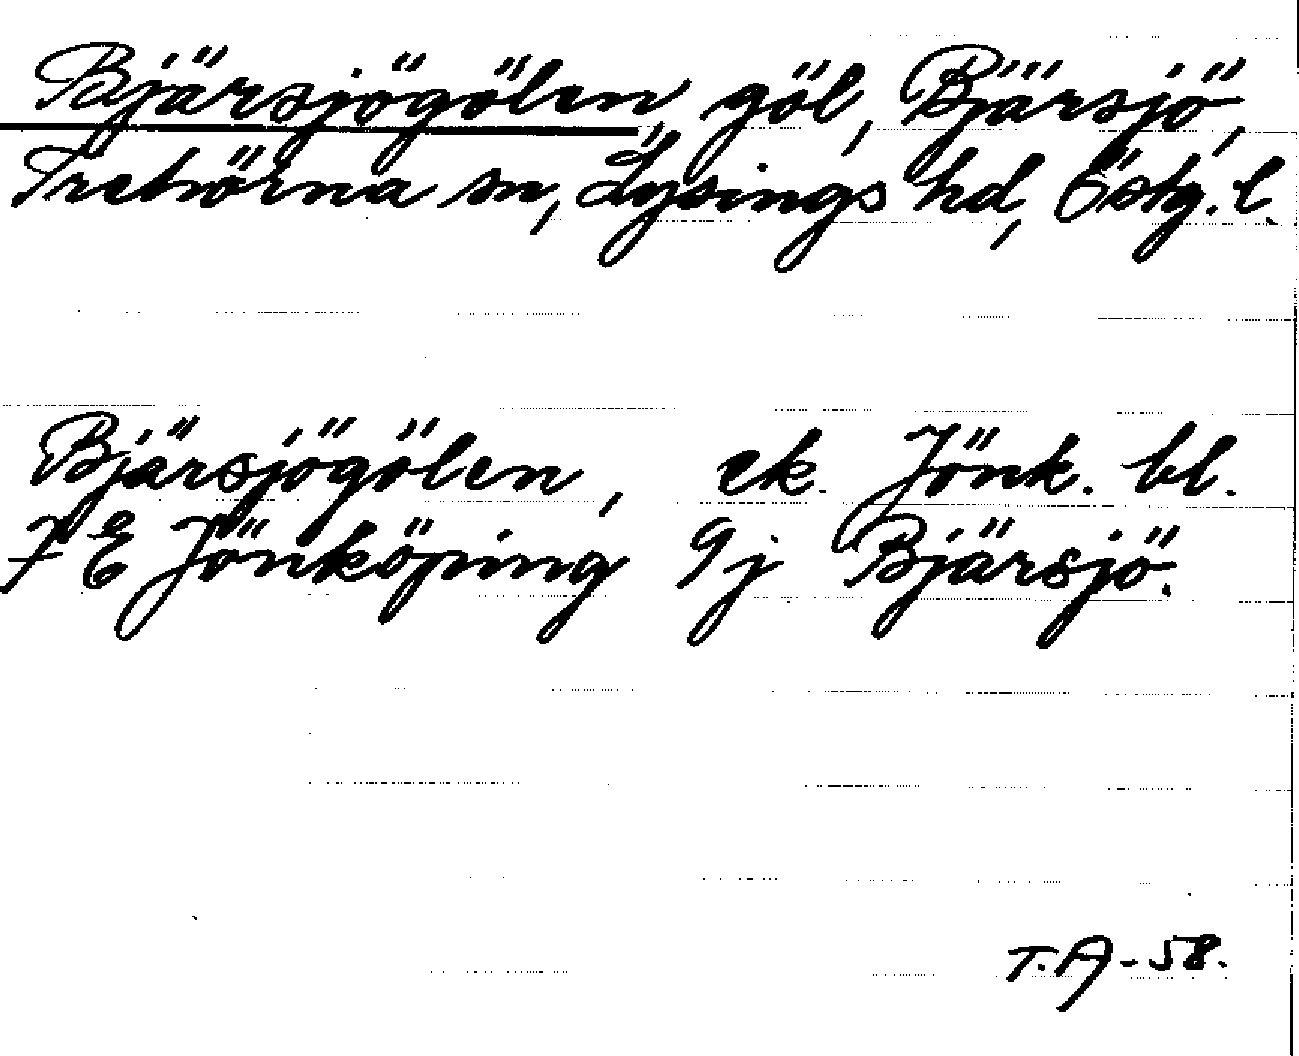 Bjärsjögölen, göl, Bjärsjö,
Trehörna sn, Lysings hd, Östg. l.
Bjärsjögölen, ek. Jönk. bl.
7 E Jönköping 9j Bjärsjö.
T.A-58.